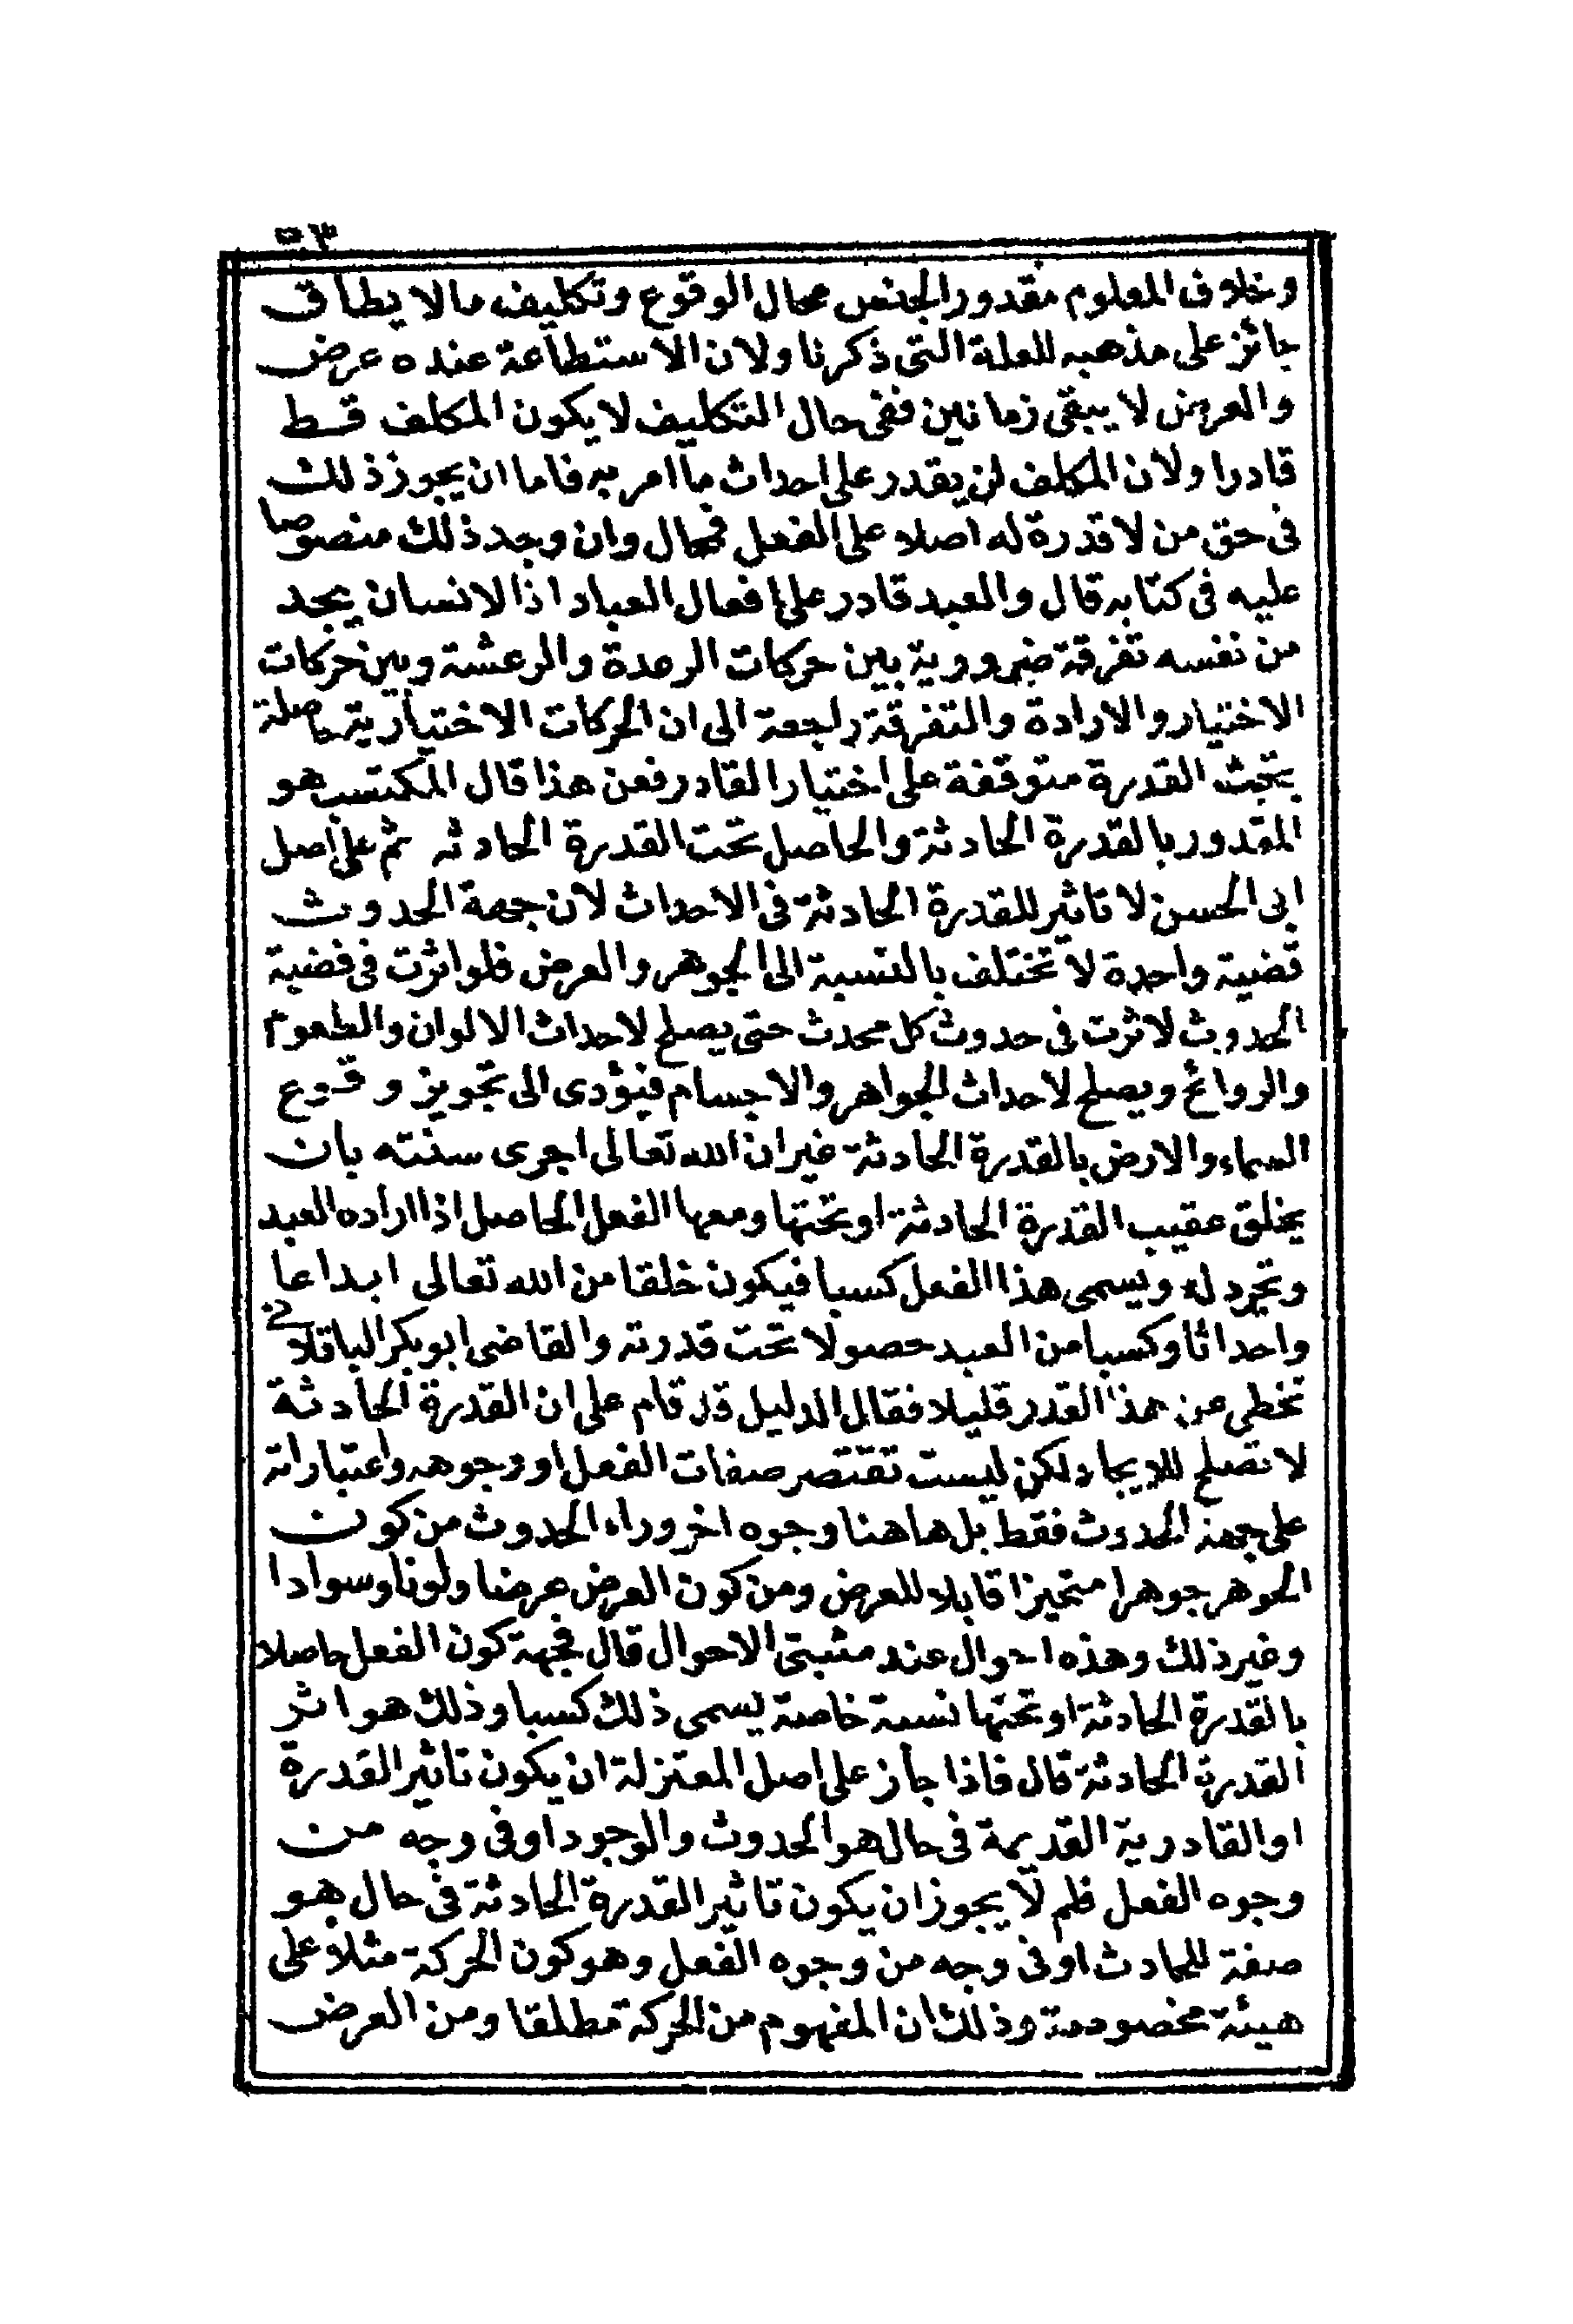 وخلاف المعلوم مقدور الجنس محال الوقوع وتكليف مالا يطاق
جائز على مذهبه للعلة التى ذكرنا ولان الاستطاعة عنده عرض
والعرض لا يبقى زمانين ففى حال التكليف لا يكون المكلف قط
قادرا ولان المكلف لن يقدر على احداث ما امر به فاما ان يجوز ذلك
فى حق من لا قدرة له اصلا على الفعل فمحال وان وجد ذلك منصوصا
عليه فى كتابه قال والعبد قادر على افعال العباد اذ الانسان يجد
من نفسه تفرقة ضرورية بين حركات الرعدة والرعشة وبين حركات
الاختيار والارادة والتفرقة راجعة الى ان الحركات الاختيارية حاصلة
بتحت القدرة متوقفة على اختيار القادر فعن هذا قال المكتسب هو
المقدور بالقدرة الحادثة والحاصل تحت القدرة الحادثه ثم على اصل
ابى الحسن لا تاثير للقدرة الحادثة فى الاحداث لان جهة الحدوث
قضية واحدة لا تختلف بالنسبة الى الجوهر والعرض فلو اثرت فى قضية
الحدوث لاثرت فى حدوث كل محدث حتى يصلح لاحداث الالوان والطعوم
والروائح ويصلح لاحداث الجواهر والاجسام فيؤدى الى تجويز وقوع
السماء والارض بالقدرة الحادثة غير ان الله تعالى اجرى سنته بان
يخلق عقيب القدرة الحادثة او تحتها ومعها الفعل الحاصل اذا اراده العبد
وتجرد له ويسمى هذا الفعل كسبا فيكون خلقا من الله تعالى ابداعا
واحداثا وكسبا من العبد حصولا تحت قدرته والقاضى ابو بكر الباقلانى
تخطى عن هذا القدر قليلا فقال الدليل قد قام على ان القدرة الحادثة
لا تصلح للايجاد لكن ليست تقتصر صفات الفعل او وجوهه واعتباراته
على جهة الحدوث فقط بل هاهنا وجوه اخر وراء الحدوث من كون
الجوهر جوهرا متحيزا قابلا للعرض ومن كون العرض عرضا ولونا وسوادا
وغير ذلك وهذه احوال عند مثبتى الاحوال قال فجهة كون الفعل حاصلا
بالقدرة الحادثة او تحتها نسبة خاصة يسمى ذلك كسبا وذلك هو اثر
القدرة الحادثة قال فاذا جاز على اصل المعتزلة ان يكون تاثير القدرة
او القادرية القديمة فى حال هو الحدوث والوجود او فى وجه من
وجوه الفعل فلم لا يجوز ان يكون تاثير القدرة الحادثة فى حال هو
صفة للحادث او فى وجه من وجوه الفعل وهو كون الحركة مثلا على
هيئة مخصوصة وذلك ان المفهوم من الحركة مطلقا ومن العرض